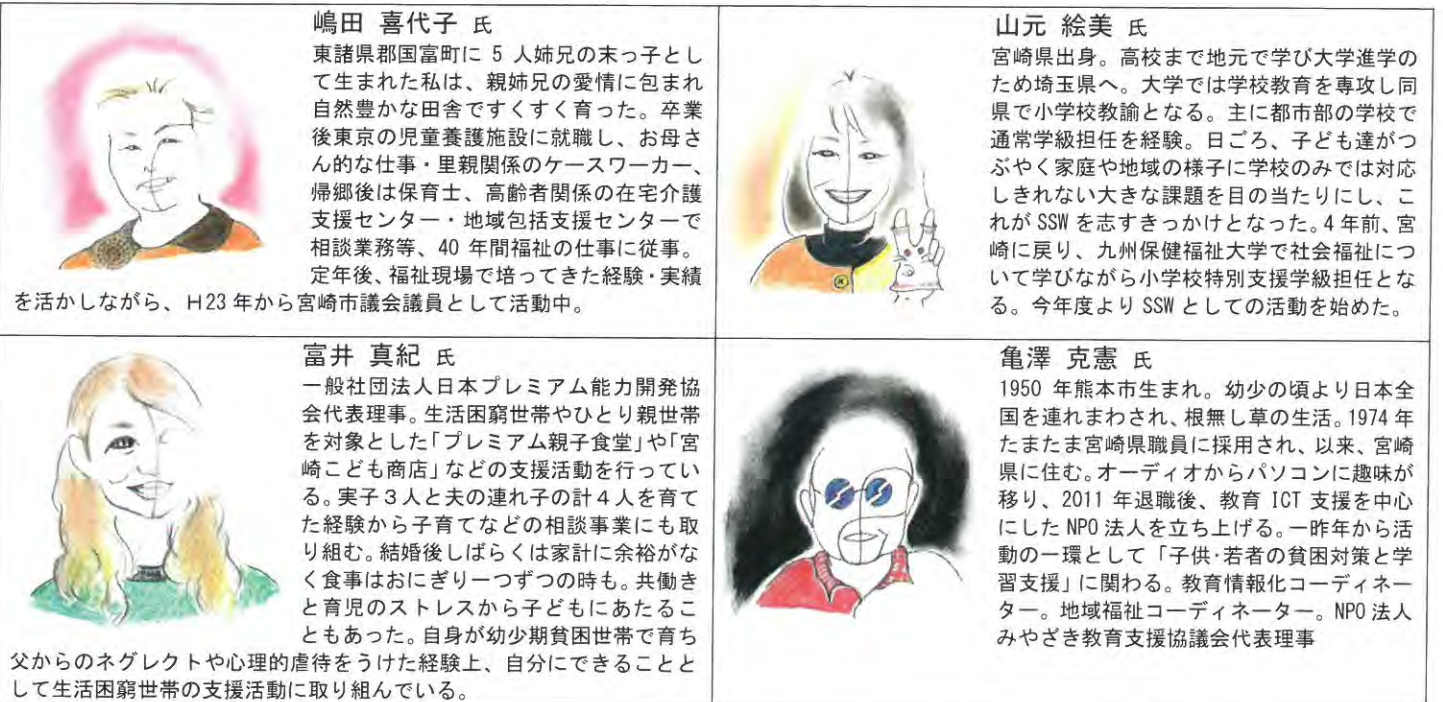 嶋田 喜代子 氏
東諸県郡国富町に 5 人姉兄の末っ子とし
て生まれた私は、親姉兄の愛情に包まれ
自然豊かな田舎ですくすく育った。卒業
後東京の児童養護施設に就職し、お母さ
ん的な仕事・里親関係のケースワーカー、
帰郷後は保育士、高齢者関係の在宅介護
支援センター・地域包括支援センターで
相談業務等、40 年間福祉の仕事に従事。
定年後、福祉現場で培ってきた経験・実績
を活かしながら、H23 年から宮崎市議会議員として活動中。
山元 絵美 氏
宮崎県出身。高校まで地元で学び大学進学の
ため埼玉県へ。大学では学校教育を専攻し同
県で小学校教諭となる。主に都市部の学校で
通常学級担任を経験。日ごろ、子ども達がつ
ぶやく家庭や地域の様子に学校のみでは対応
しきれない大きな課題を目の当たりにし、こ
れが SSW を志すきっかけとなった。4 年前、宮
崎に戻り、九州保健福祉大学で社会福祉につ
いて学びながら小学校特別支援学級担任とな
る。今年度より SSW としての活動を始めた。
富井 真紀 氏
一般社団法人日本プレミアム能力開発協
会代表理事。生活困窮世帯やひとり親世帯
を対象とした「プレミアム親子食堂」や「宮
崎こども商店」などの支援活動を行ってい
る。実子３人と夫の連れ子の計４人を育て
た経験から子育てなどの相談事業にも取
り組む。結婚後しばらくは家計に余裕がな
く食事はおにぎり一つずつの時も。共働き
と育児のストレスから子どもにあたるこ
ともあった。自身が幼少期貧困世帯で育ち
父からのネグレクトや心理的虐待をうけた経験上、自分にできることと
して生活困窮世帯の支援活動に取り組んでいる。
亀澤 克憲 氏
1950 年熊本市生まれ。幼少の頃より日本全
国を連れまわされ、根無し草の生活。1974 年
たまたま宮崎県職員に採用され、以来、宮崎
県に住む。オーディオからパソコンに趣味が
移り、2011 年退職後、教育 ICT 支援を中心
にした NPO 法人を立ち上げる。一昨年から活
動の一環として「子供・若者の貧困対策と学
習支援」に関わる。教育情報化コーディネー
ター。地域福祉コーディネーター。NPO 法人
みやざき教育支援協議会代表理事